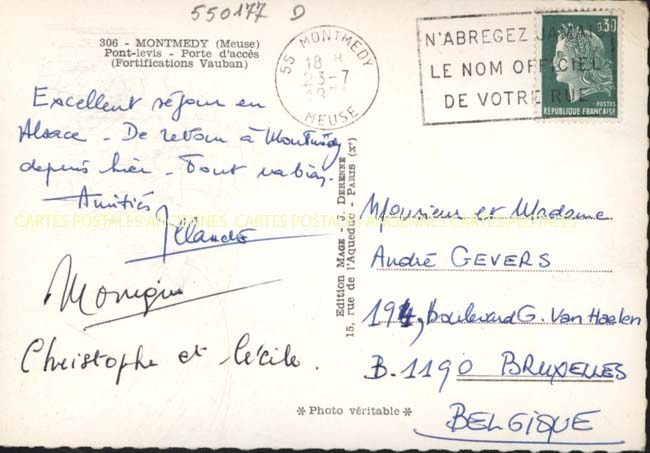 550177 D
306 - MONTMEDY (Meuse)
Pont-levis - Porte d'accès
(Fortifications Vauban)
Excellent séjour en
Alsace - De retour à Montmédy
depuis hier - Tout va bien.
Amitiés
Monique
Christophe et Cécile.
55 MONTMEDY
18 H
23-7
MEUSE
N'ABREGEZ JAMAIS
LE NOM OFFICIEL
DE VOTRE RUE
0,30
POSTES
REPUBLIQUE FRANÇAISE
Edition MAGE - J. DERENNE
15, rue de l'Aqueduc - PARIS (Xe)
Monsieur et Madame
André GEVERS
194, boulevard G. Van Haelen
B. 1190 BRUXELLES
BELGIQUE
* Photo véritable *
CARTES POSTALES ANCIENNES CARTES POSTALES ANCIENNES CARTES POSTALES